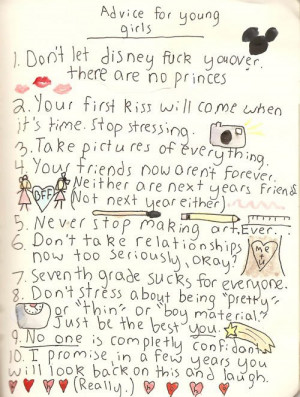 Advice for young
girls
1. Don't let disney fuck you over.
there are no princes
2. Your first kiss will come when
it's time. Stop stressing.
3. Take pictures of everything.
4 Your friends now aren't forever.
BFF
Neither are next years friends
(Not next year either)
5. Never stop making art. Ever.
6. Don't take relationships
now too seriously, okay?
7. Seventh grade sucks for everyone.
8. Don't stress about being "pretty"
or "thin" or "boy material."
Just be the best you.
9. No one is completly confidant
10. I promise, in a few years you
will look back on this and laugh.
(Really.)